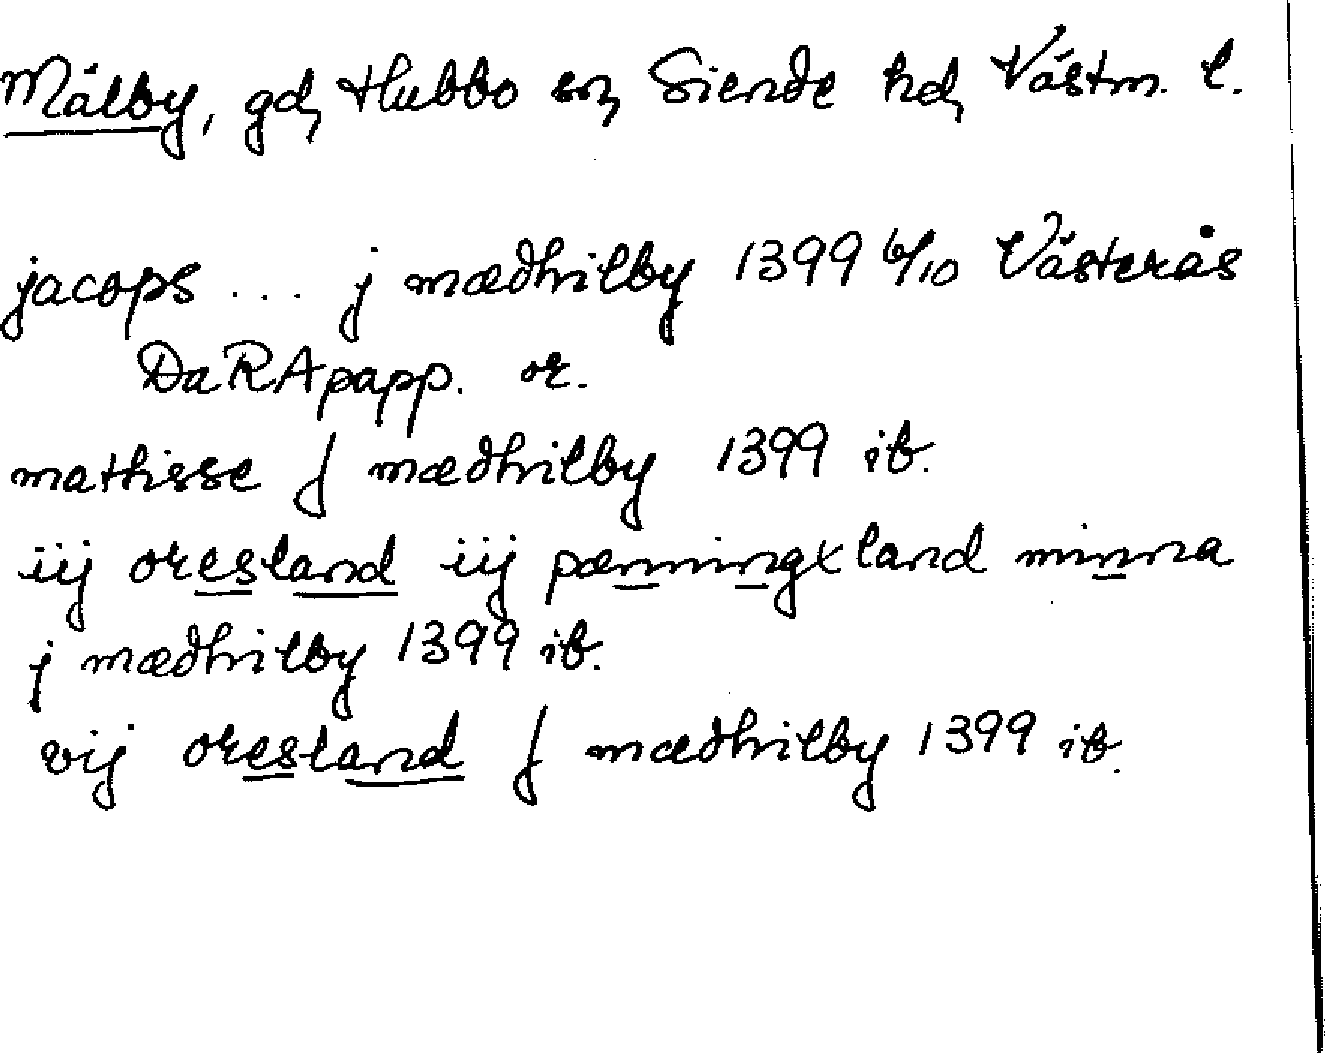 Mälby, gd, Hubbo sn, Siende hd, Västm. l.
jacops ... j mædhilby 1399 6/10 Västerås
DaRApapp. or.
mathisse j mædhilby 1399 ib.
iij oresland iij pænningxland minna
j mædhilby 1399 ib.
vij oresland j mædhilby 1399 ib.